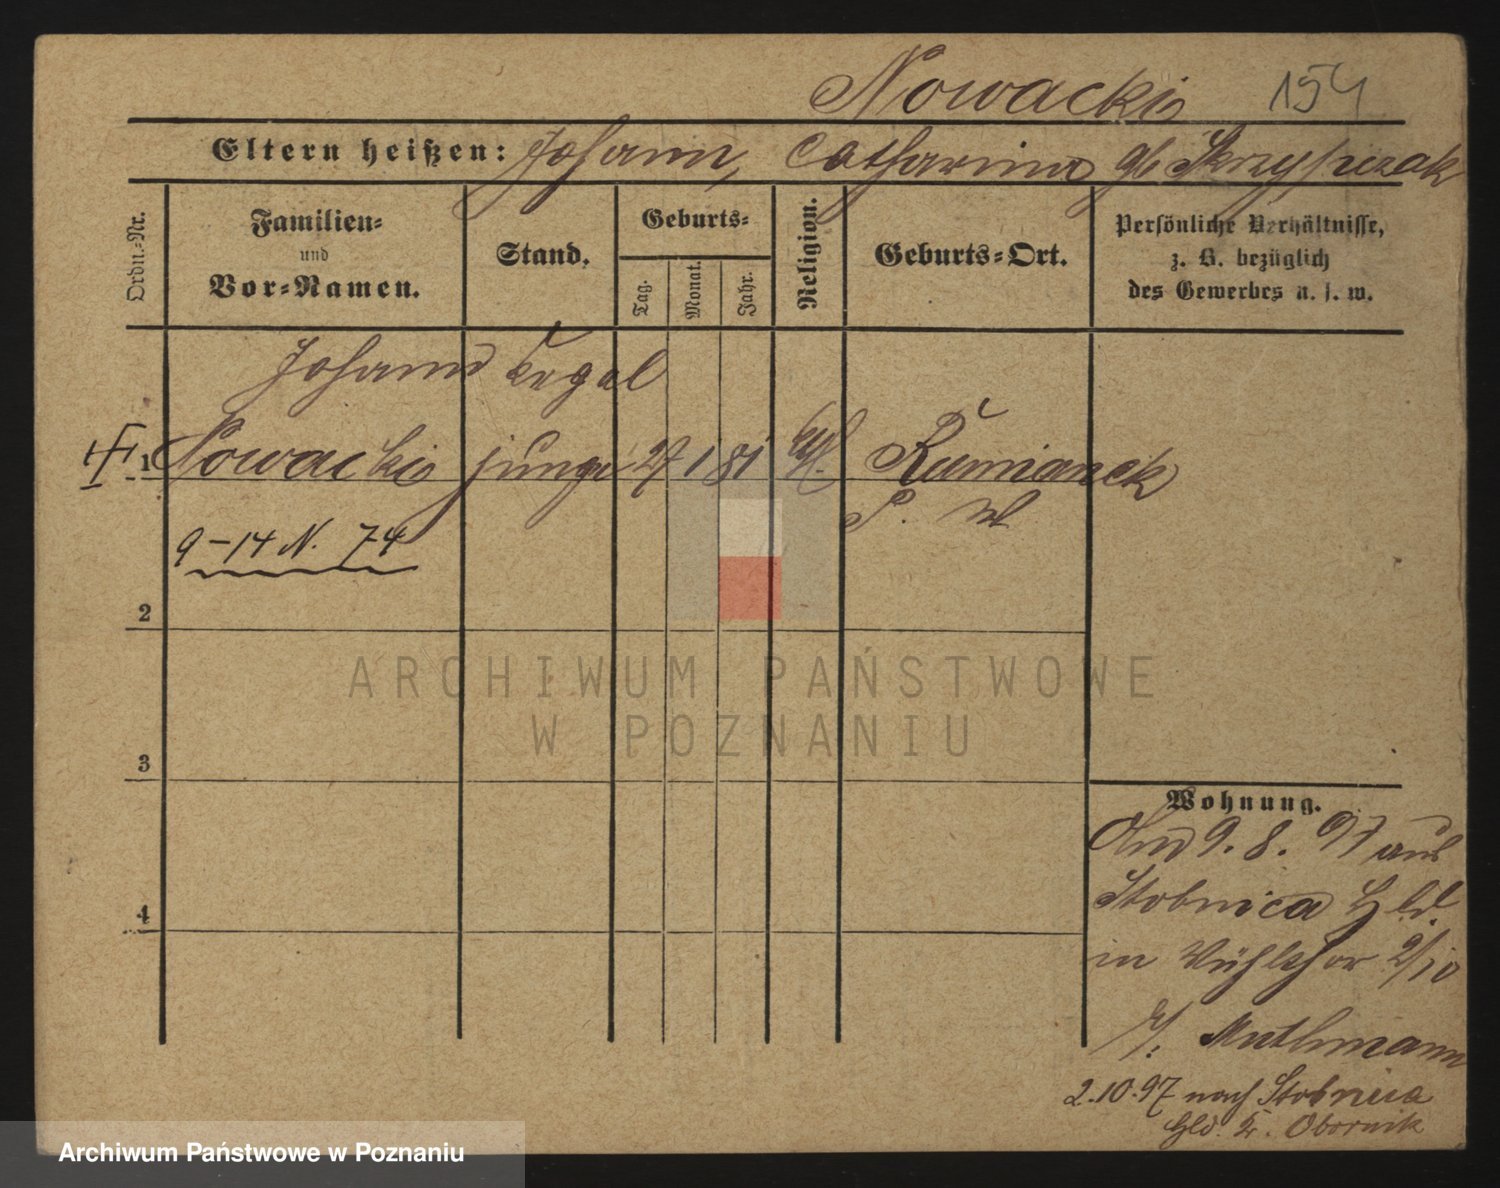 Nowacki 154
Eltern heißen: Johann, Catharina gb Skrzypczak
Ordn.-Nr.
Familien-
und
Vor-Namen.
Stand.
Geburts-
Tag.
Monat.
Jahr.
Religion.
Geburts-Ort.
Persönliche Verhältnisse,
z. B. bezüglich
des Gewerbes u. s. w.
Johann Kegel
1 Nowacki junge 27 1 81 Rumianek
P. W
9-14 N. 74
2
3
4
Wohnung.
9. 8. 97 aus
Stobnica Hld.
in 9/10
b/. Muthmann
2.10.97 nach Stobnica
Hld. Kr. Obornik
ARCHIWUM PAŃSTWOWE
W POZNANIU
Archiwum Państwowe w Poznaniu